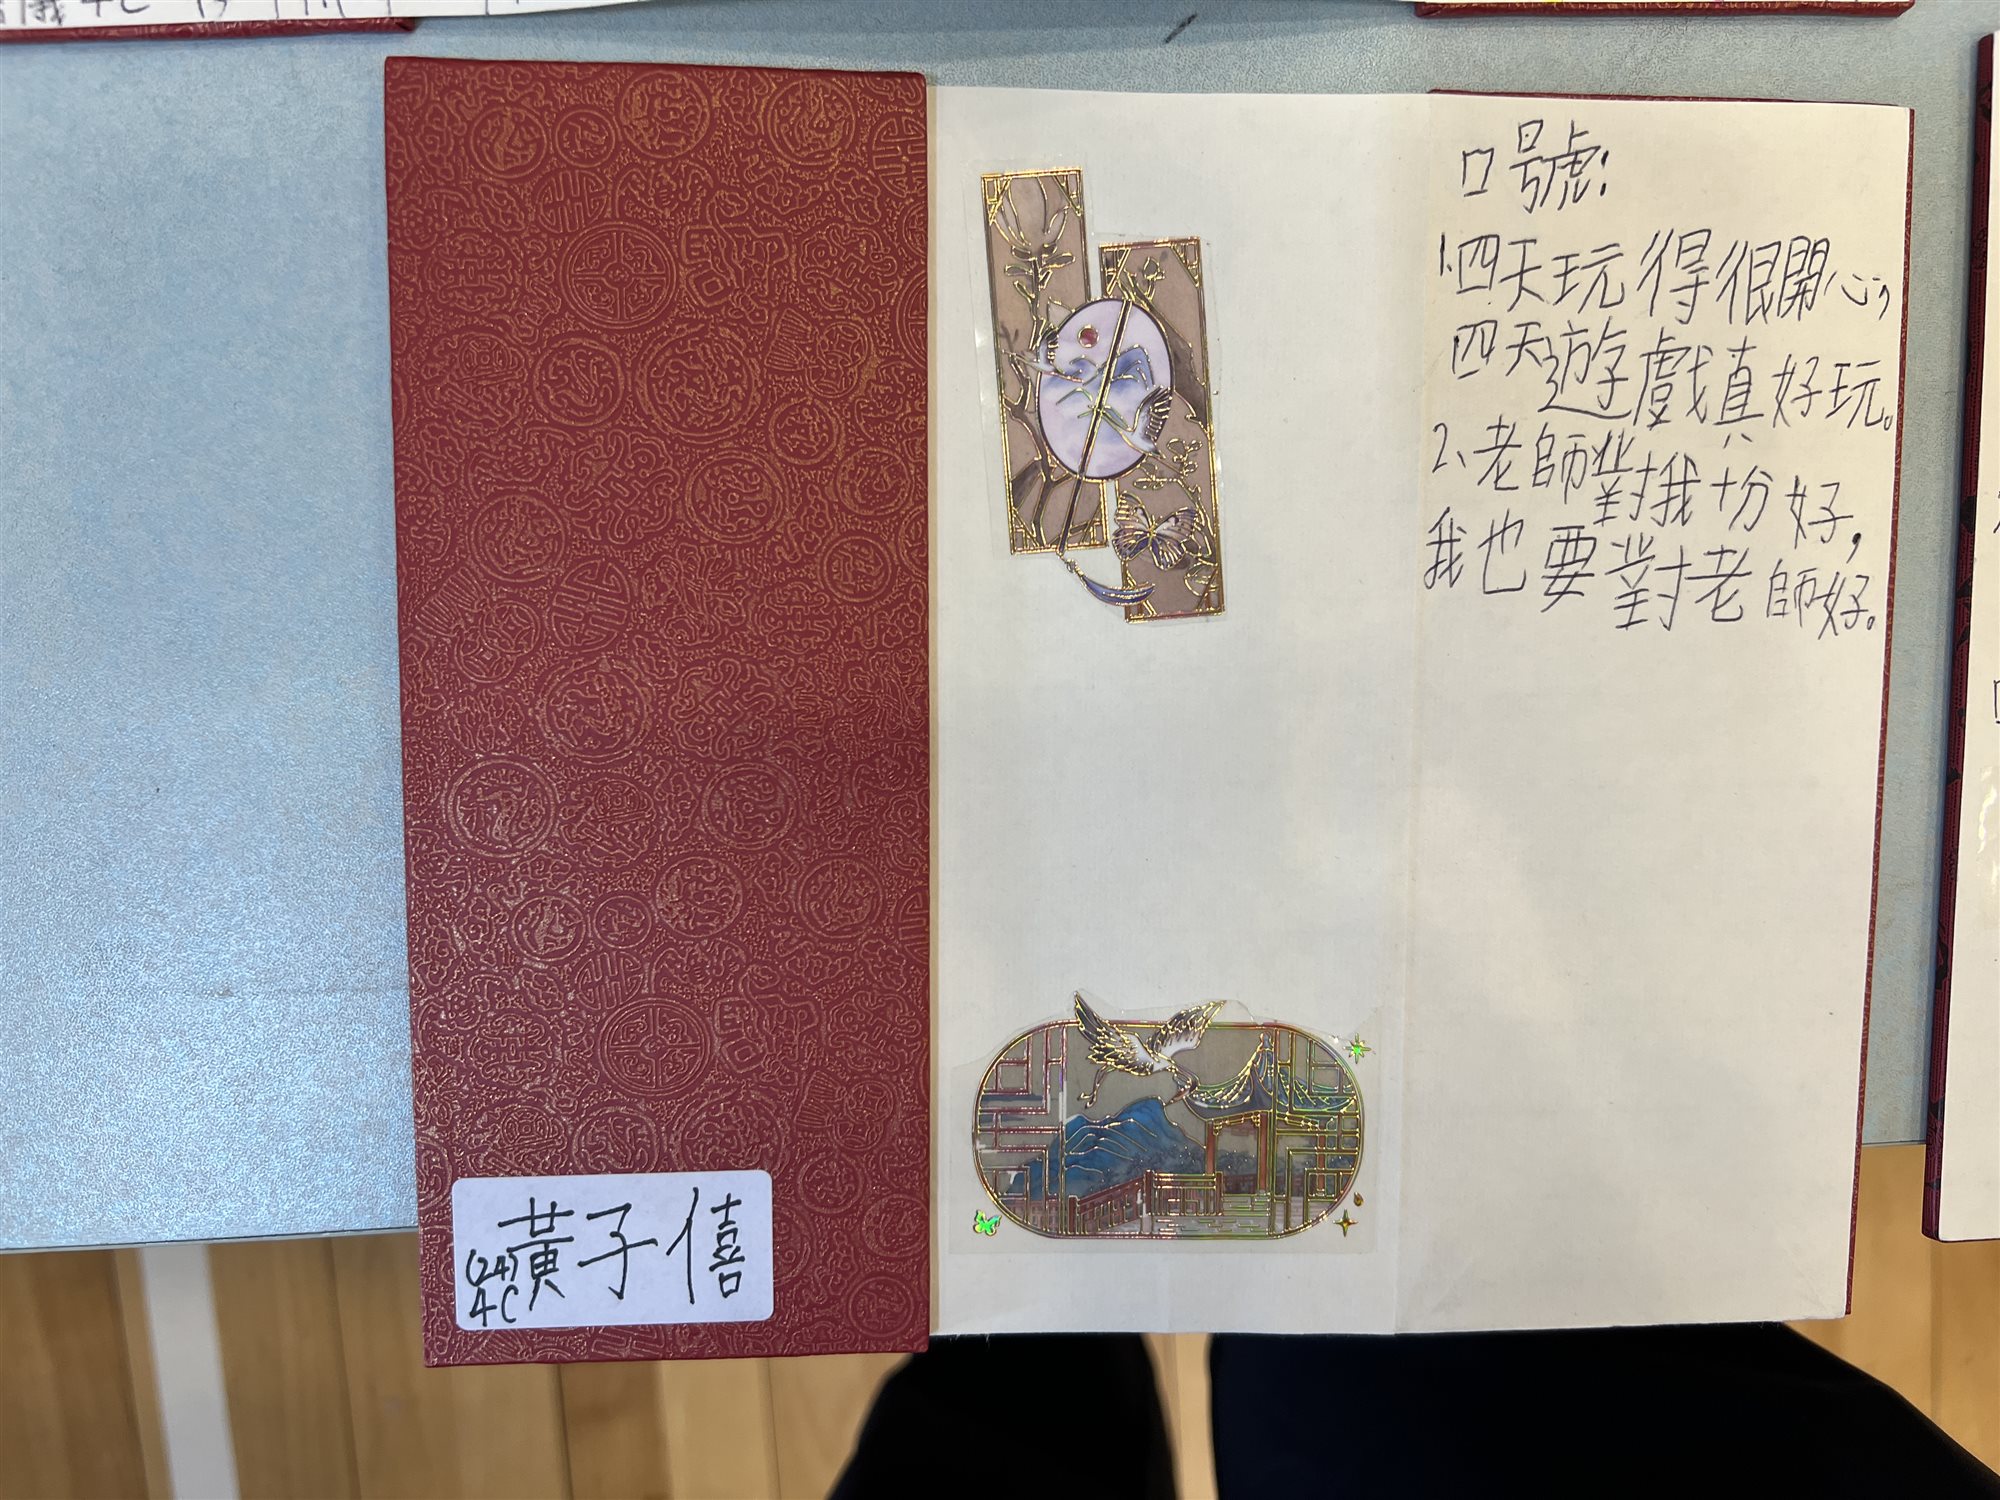 口號:
1.四天玩得很開心,
四天遊戲真好玩。
2、老師對我十分好,
我也要對老師好。
黃子僖
(24)
4C